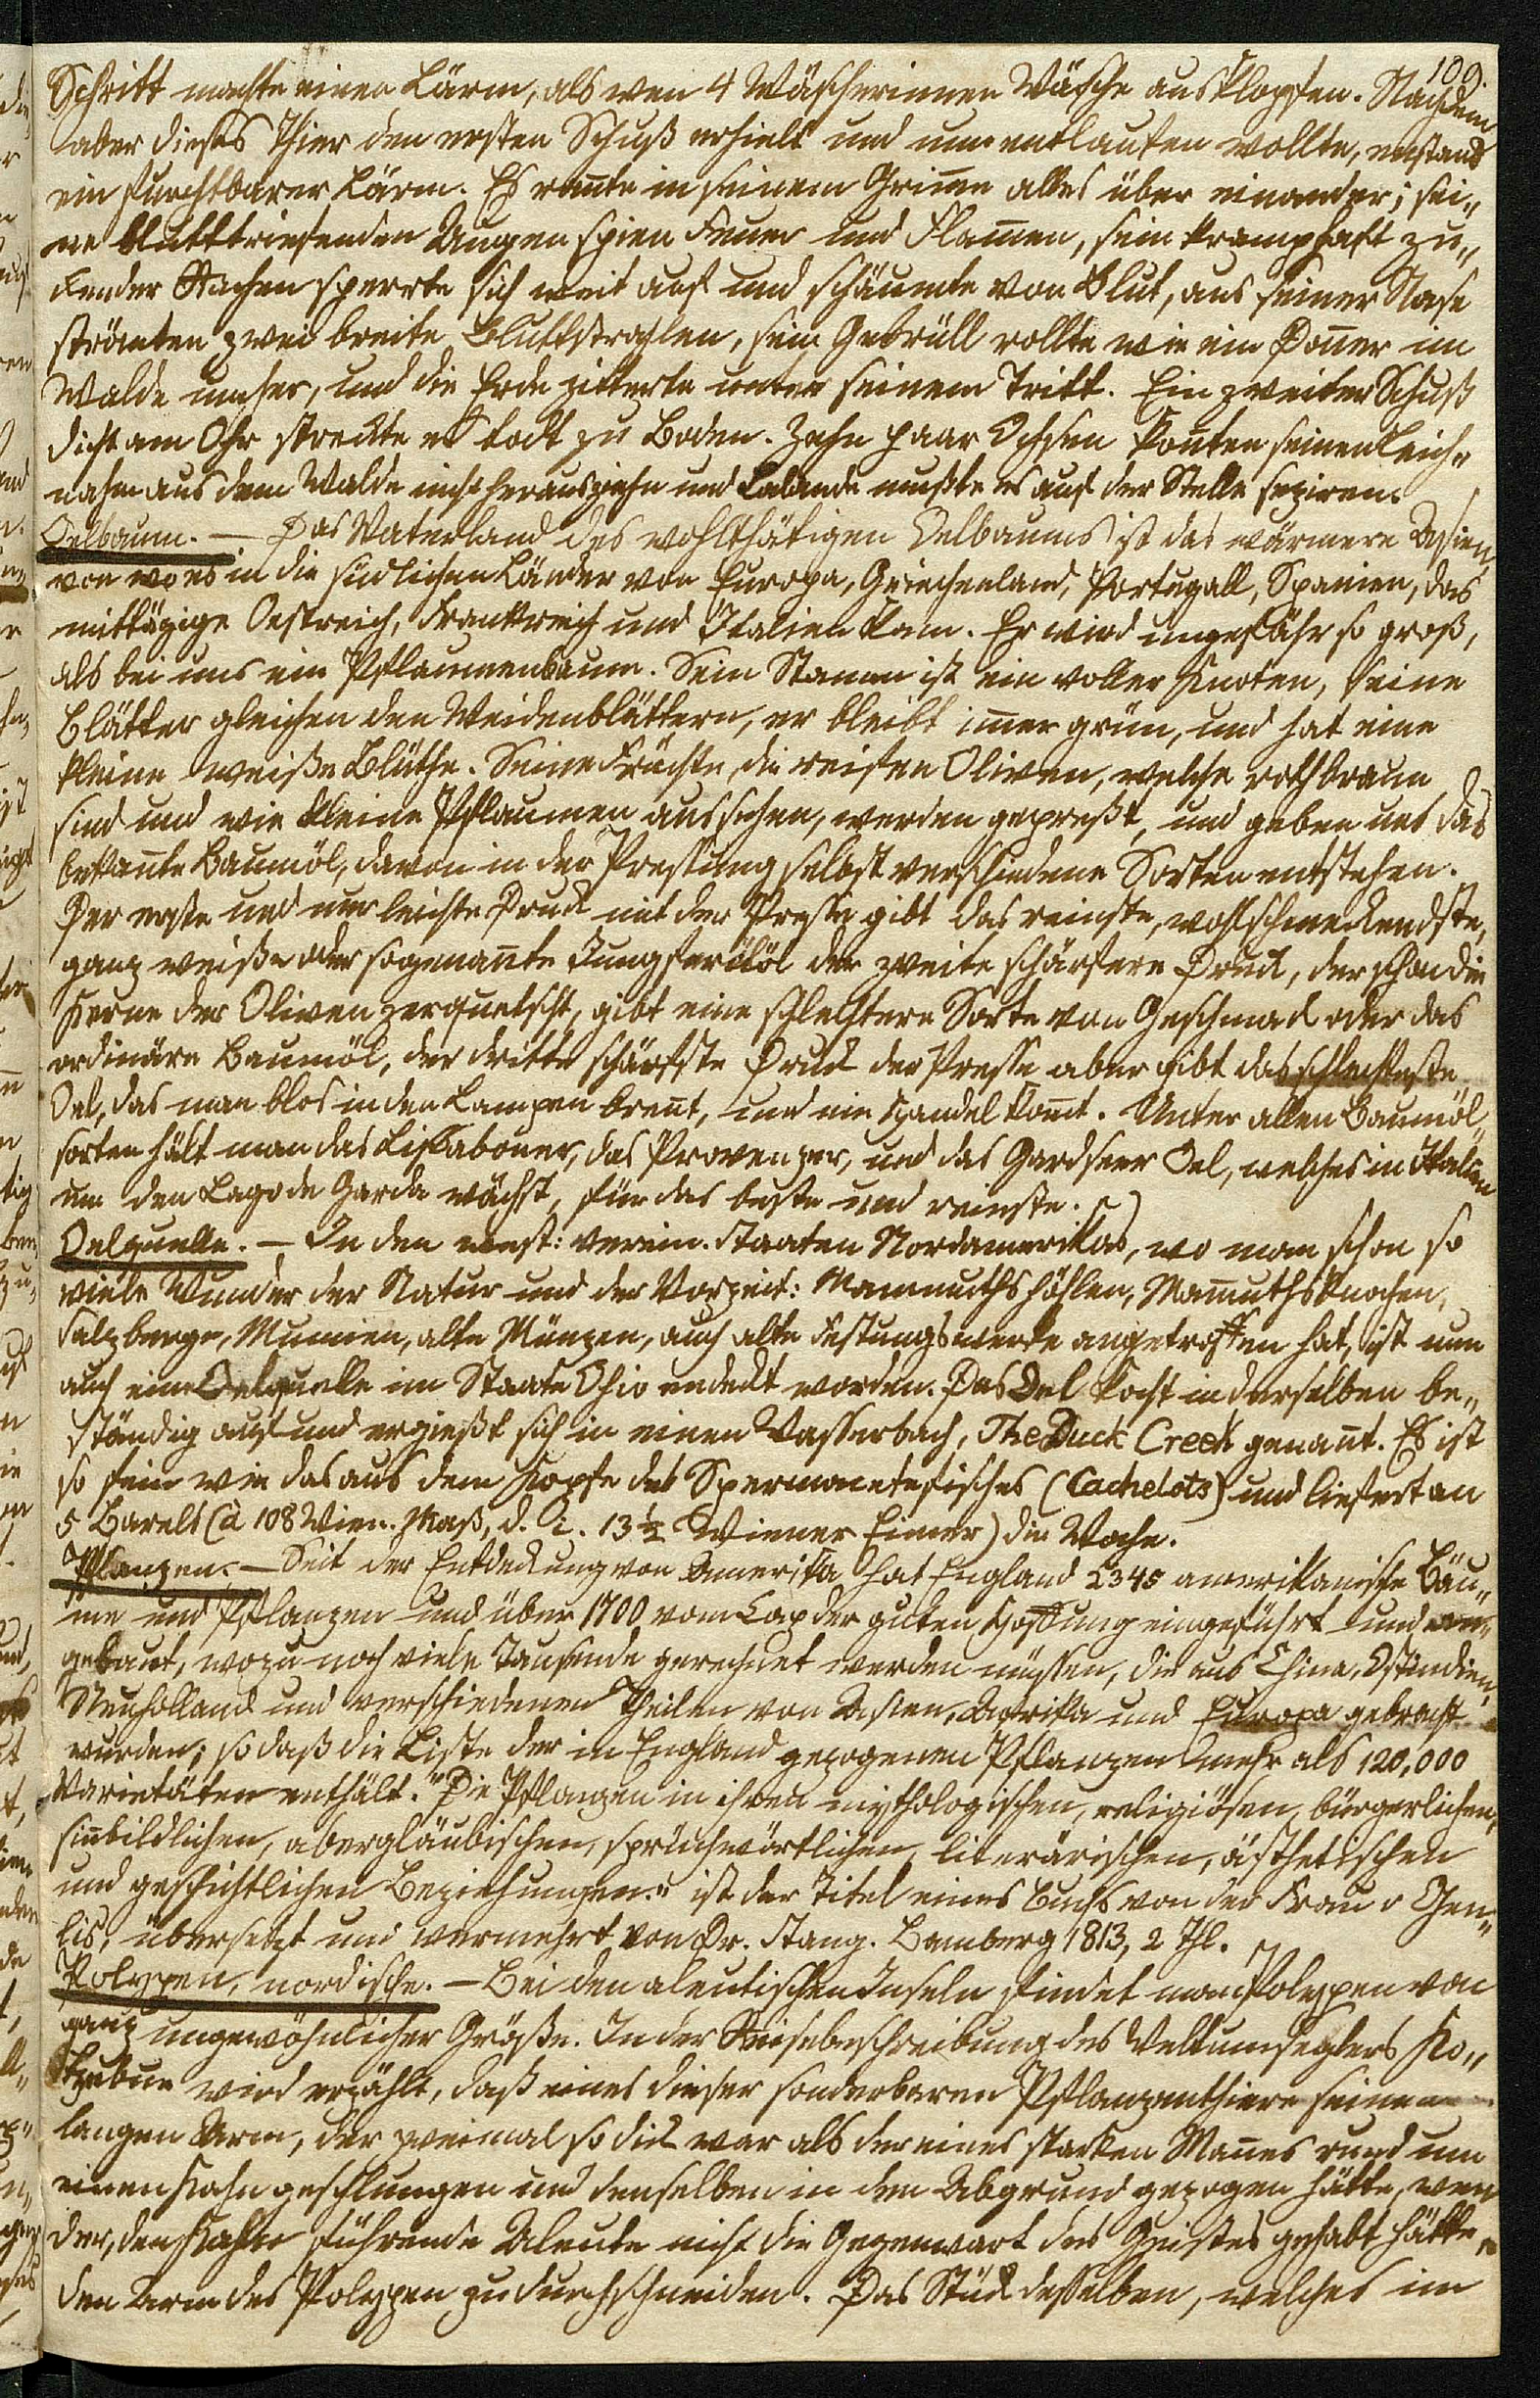 109.
Schritt machte einen Lärm, als wen 4 Wäscherinnen Wäsche ausklopfen. Nachdem
aber dieses Thier den ersten Schuß erhielt und nun entlaufen wollte, enstand
ein furchtbarer Lärm. Es rannte in seinem Grimme alles über einander; sei„
ne bluttriefenden Augen spien Feuer und Flam̄en, sein krampfhaft zu„
ckender Rachen sperrte sich weit auf und schäumte von Blut, aus seiner Nase
strömten zwei breite Blutstrahlen, sein Gebrüll rollte wie ein Don̄er im
Walde umher, und die Erde zitterte unter seinem Tritt. Ein zweiter Schuß
dicht am Ohr streckte es todt zu Boden. Zehn paar Ochsen kon̄ten seinen Leich„
nahm aus dem Walde nicht herausziehn und Lalande mußte es auf der Stelle seziren.
Oelbaum. — Das Vaterland des wohlthätigen Oelbaums ist das wärmere Asien,
von wo es in die südlichen Länder von Europa, Griechenland, Portugall, Spanien, das
mittägige Oestreich, Frankreich und Italien kam. Er wird ungefähr so groß,
als bei uns ein Pflaumenbaum. Sein Stamm ist ein voller Knoten, seine
Blätter gleichen den Weidenblättern, er bleibt im̄er grün, und hat eine
kleine weiße Blüthe. Seine Früchte, die reifen Oliven, welche rothbraun
sind und wie kleine Pflaumen aussehen, werden gepreßt, und geben uns das
bekan̄te Baumöl, davon in der Pressung selbst verschiedene Sorten entstehen.
Der erste und nur leichte Druck mit der Presse gibt das reinste, wohlschmeckendste,
ganz weiße oder sogenan̄te Jungferöl der zweite schärfere Druck, der schon die
Kerne der Oliven zerquetscht, gibt eine schlechtere Sorte von Geschmack oder das
ordinäre Baumöl, der dritte schärfste Druck der Presse aber gibt das schlechteste
Oel, das man blos in den Lampen bren̄t, und nie Handel kom̄t. Unter allen Baumöl„
sorten hält man das Lissaboner, das Provenzer, und das Gardseer Oel, welches in Italien
um den Lago de Garda wächst, für das beste und reinste.
Oelquelle. — In den west: verein. Staaten Nordamerikas, wo man schon so
viele Wunder der Natur und der Vorzeit: Mammuthshöhlen, Mam̄uthsknochen,
Salzberge, Mumien, alte Münzen, auch alte Festungswerke angetroffen hat, ist nun
auch eine Oelquelle im Staate Ohio endeckt worden. Das Oel kocht in derselben be„
ständig auf und ergießt sich in einen Wasserbach, The Duck Creek genan̄t. Es ist
so fein wie das aus dem Kopfe des Spermacetefisches (Cachelots) und liefert an
5 Barels (à 108 Wien. Maß, d. i. 13½ Wiener Eimer) die Woche.
Pflanzen. — Seit der Entdeckung von Amerika hat England 2345 amerikanische Bäu„
me und Pflanzen und über 1700 vom Cap der guten Hoffnung eingeführt und an„
gebaut, wozu noch viele Tausende gerechnet werden müssen, die aus China, Ostindien,
Neuholland und verschiedenen Theilen von Asien, Afrika und Europa gebracht
wurden; so daß die Liste der in England gezogenen Pflanzen mehr als 120,000
Varietäten enthält. "Die Pflanzen in ihren mythologischen, religiösen, bürgerlichen,
sin̄bildlichen, abergläubischen, sprüchwörtlichen, literärischen, ästhetischen
und geschichtlichen Beziehungen." ist der Titel eines Buchs von der Frau v Gen„
lis, übersetzt und vermehrt von Dr. Stang. Bamberg 1813, 2 Thl.
Polypen, nordische. — Bei den aleutischen Inseln findet man Polypen von
ganz ungewöhnlicher Größe. In der Reisebeschreibung des Weltumseglers Ko„
tzebue wird erzählt, daß eines dieser sonderbaren Pflanzenthiere seinen
langen Arm, der zweimal so dick war als der eines starken Man̄es rund um
einen Kahn geschlungen und denselben in den Abgrund gezogen hätte, wen
der, den Kahn führende Aleute nicht die Gegenwart des Geistes gehabt hätte,
den Arm des Polypen zu durchschneiden. Das Stück desselben, welches im